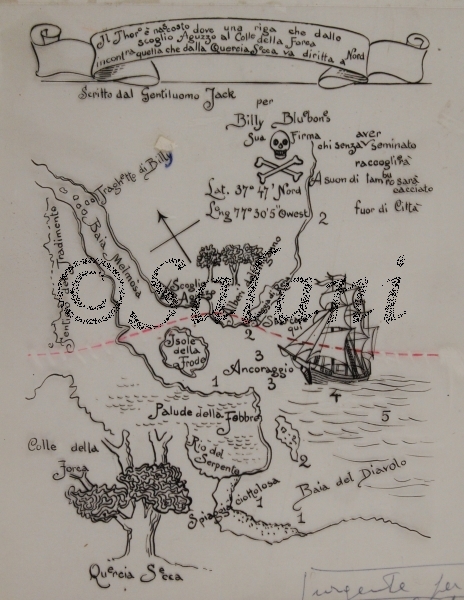 Il Thoro è nascosto dove una riga che dallo
scoglio Aguzzo al Colle della Forca
incontra quella che dalla Quercia Secca va diritta a Nord
Scritto dal Gentiluomo Jack
per
Billy Blubons
Sua Firma
chi senza aver seminato
raccoglierà
A suon di tamburo sarà
cacciato
fuor di Città
Lat. 37° 47' Nord
Long 77° 30' 5" Owest
2
Traghetto di Billy
Baia Melmosa
Sentiero del Tradimento
Scoglio
Aguzzo
Alberi
Sbarco
qui
2
©Salani
Isole
della
Frode
3
Ancoraggio
3
1
4
5
Palude della Febbre
Rio del
Serpente
2
Colle della
Forca
Baia del Diavolo
Spiaggia ciottolosa
1
1
Quercia Secca
urgente per